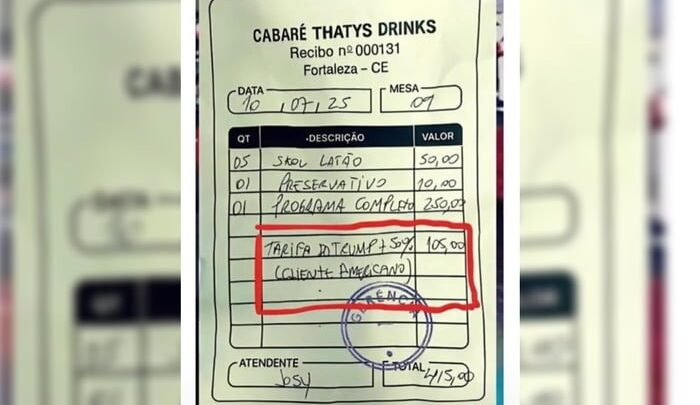 CABARÉ THATYS DRINKS
Recibo nº 000131
Fortaleza - CE
DATA MESA
10 , 07 , 25 09
QT DESCRIÇÃO VALOR
05 SKOL LATÃO 50,00
01 PRESERVATIVO 10,00
01 PROGRAMA COMPLETO 250,00
TARIFA DO TRUMP + 50% 105,00
(CLIENTE AMERICANO)
GERÊNCIA
ATENDENTE TOTAL
Josy 415,00